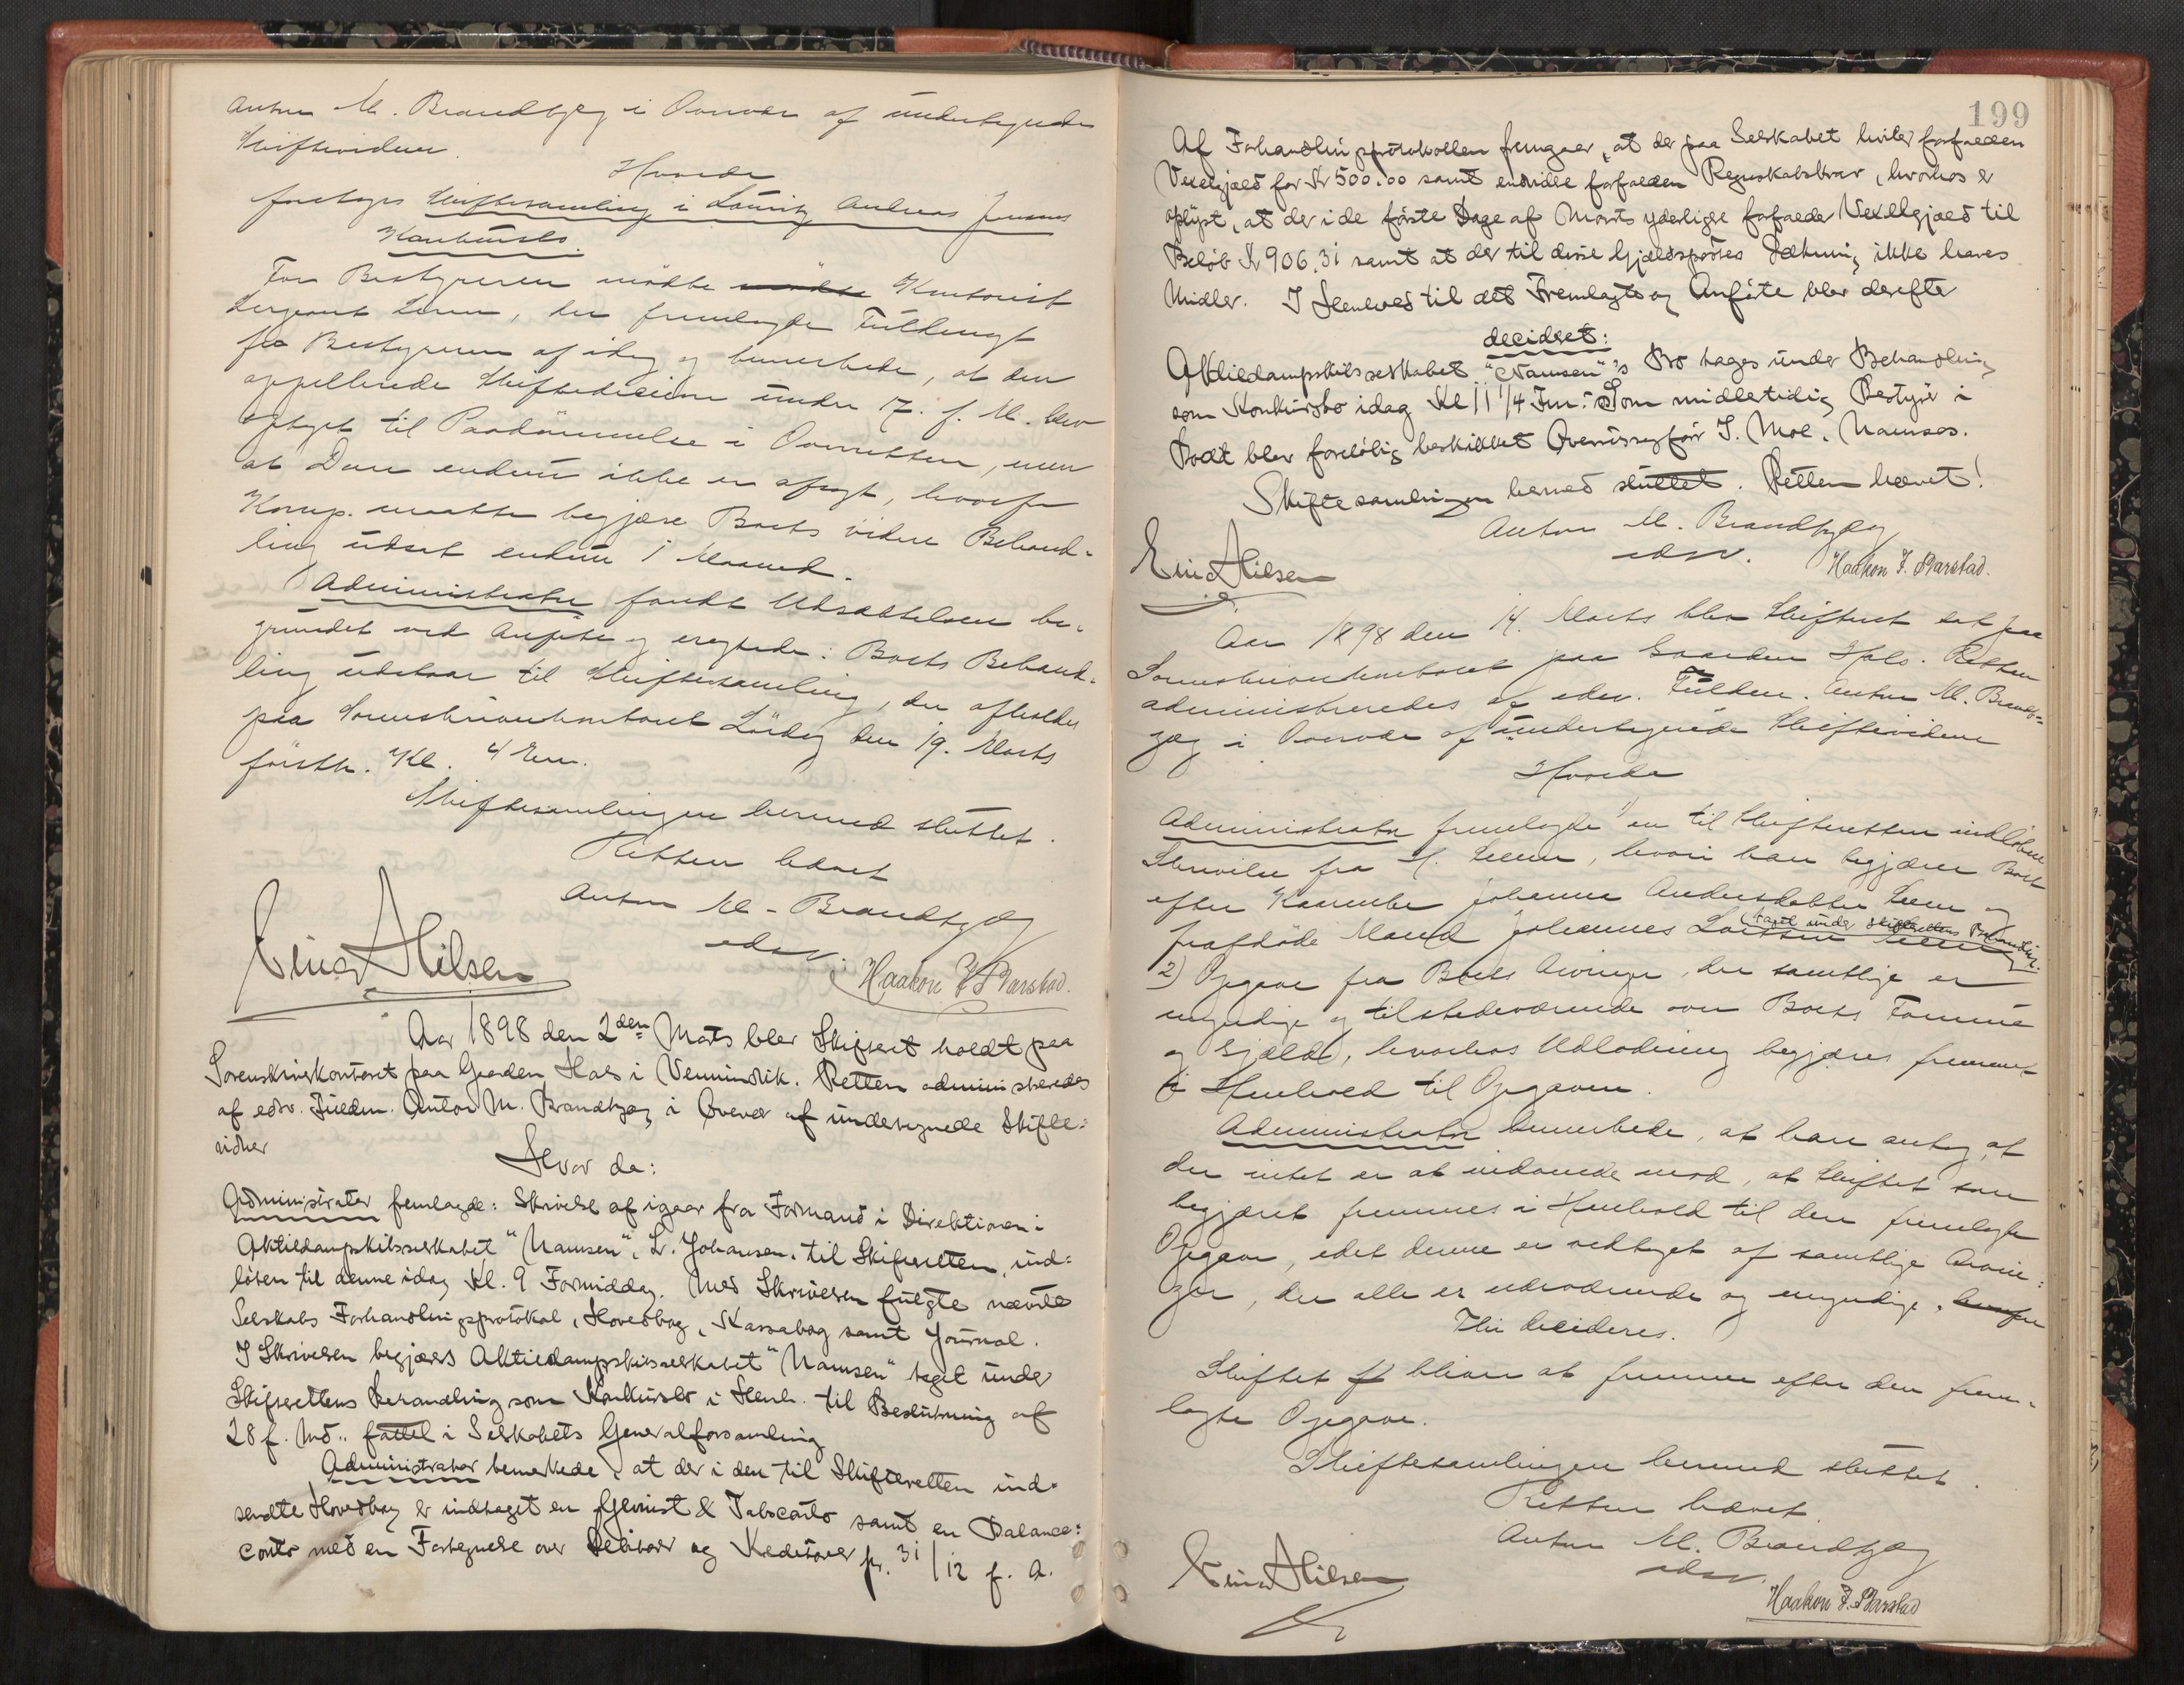 Anton M. Brandtzæg i Overvær af undertegnede
Skiftevidner.
Hvorda
foretoges Skiftesamling i Lauritz Andreas Jensens
Konkursbo.
For Bestyreren mødte mødte Kontorist
Sergeant Lorem, der fremlagde Fuldmagt
fra Bestyreren af idag og bemerkede, at den
appellerede Skiftedecision under 17. f. M. blev
optaget til Paadømmelse i Overretten, men
at Dom endnu ikke er afsagt, hvorfor
Komp. maatte begjære Boets videre Behand-
ling udsat endnu 1 Maaned.
Administrator fandt Udsættelsen be-
grundet ved Anførte og eragtede: Boets Behand-
ling udstaar til Skiftesamling, der afholdes
paa Sorenskriverkontoret Lørdag den 19. Marts
førstk. Kl. 4 Em.
Skiftesamlingen hermed sluttet.
Retten hævet
Anton M. Brandtzæg
edsv.
Einar Hilsen
Haakon J. Barstad.
Aar 1898 den 2den Mats blev Skifteret holdt paa
Sorenskriverkontoret paa Gaarden Hals i Vemundvik. Retten administreredes
af edsv. Fuldm. Anton M. Brandtzæg i Overvær af undertegnede Skifte-
vidner
Hvor da:
Administrator fremlagde: Skrivelse af igaar fra Formand i Direktionen i
Aktiedampskibsselskabet "Namsen", L. Johansen, til Skifteretten, ind-
løben til denne idag Kl. 9 Formiddag. Med Skrivelsen fulgte nævnte
Selskabs Forhandlingsprotokol, Hovedbog, Kassabog samt Journal.
I Skrivelsen begjæres Aktiedampskibsselskabet "Namsen" taget under
Skifterettens Behandling som Konkursbo i Henh. til Beslutning af
28 f. Md. fattet i Selskabets Generalforsamling
Administrator bemerkede, at der i den til Skifteretten ind-
sendte Hovedbog er indtaget en Gevinst & Tabsconto samt en Balance-
conto med en Fortegnelse over Debitorer og Kreditorer pr. 31/12 f. A.
199
Af Forhandlingsprotokollen fremgaar, at der paa Selskabet hviler forfalden
Vexelgjæld for Kr 500.00 samt endvidere forfalden Regnskabskrav, hvorhos er
oplyst, at der i de første Dage af Marts yderligere forfalder Vexelgjæld til
Beløb Kr 906.31 samt at der til disse Gjældsposters Dækning ikke haves
Midler. I Henhold til det Fremlagte og Anførte blev derefter
decideret:
Aktiedampskibsselskabet "Namsen"'s Bo tages under Behandling
som Konkursbo idag Kl 11 1/4 Fm. Som midlertidig Bestyrer i
Boet blev foreløbig beskikket Overretssagfører J. Moe, Namsos.
Skiftesamlingen hermed sluttet. Retten hævet!
Anton M. Brandtzæg
edsv.
Einar Hilsen
Haakon J. Barstad.
Aar 1898 den 14. Marts blev Skifteret sat paa
Sorenskriverkontoret paa Gaarden Hals. Retten
administreredes af edsv. Fuldm. Anton M. Brandt-
zæg i Overvær af undertegnede Skiftevidner
Hvorda
Administrator fremlagde 1) en til Skifteretten indløben
Skrivelse fra H. Leem, hvori han begjærer Boet
efter Kaarenke Johanna Andersdatter Leem og
fraafdøde Mand Johannes Larssen Leem
taget under Skifterettens Behandling.
2) Opgave fra Boets Arvinger, der samtlige er
myndige og tilstedeværende over Boets Formue
og Gjæld, hvorhos Udlodning begjæres fremmet
i Henhold til Opgaven.
Administrator bemerkede, at han antog, at
der intet er at indvende mod, at Skiftet som
begjæret fremmes i Henhold til den fremlagte
Opgave, idet denne er vedtaget af samtlige Arvin-
ger, der alle er nærværende og myndige, hvorfor
Thi decideres.
Skiftet bliver at fremme efter den frem-
lagte Opgave.
Skiftesamlingen hermed sluttet.
Retten hævet
Anton M. Brandtzæg
edsv.
Einar Hilsen
Haakon J. Barstad